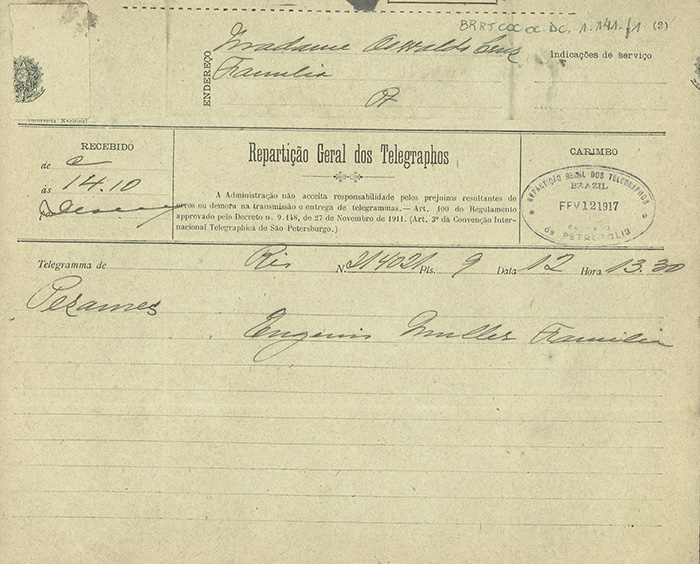 BR RJ COC OC. DC. 1.141.f1 (2)
Madame Oswaldo Cruz
Familia
ENDEREÇO
Indicações de serviço
Imprensa Nacional
RECEBIDO
de
ás 14.10
por
Repartição Geral dos Telegraphos
A Administração não acceita responsabilidade pelos prejuizos resultantes de
erros ou demora na transmissão e entrega de telegrammas.— Art. 100 do Regulamento
approvado pelo Decreto n. 9.148, de 27 de Novembro de 1911. (Art. 3º da Convenção Inter-
nacional Telegraphica de São Petersburgo.)
CARIMBO
REPARTIÇÃO GERAL DOS TELEGRAPHOS
BRAZIL
FEV 12 1917
DE PETROPOLIS
Telegramma de Rio N. 214021 Pls. 9 Data 12 Hora 13.30
Pezames
Eugenio Muller Familia